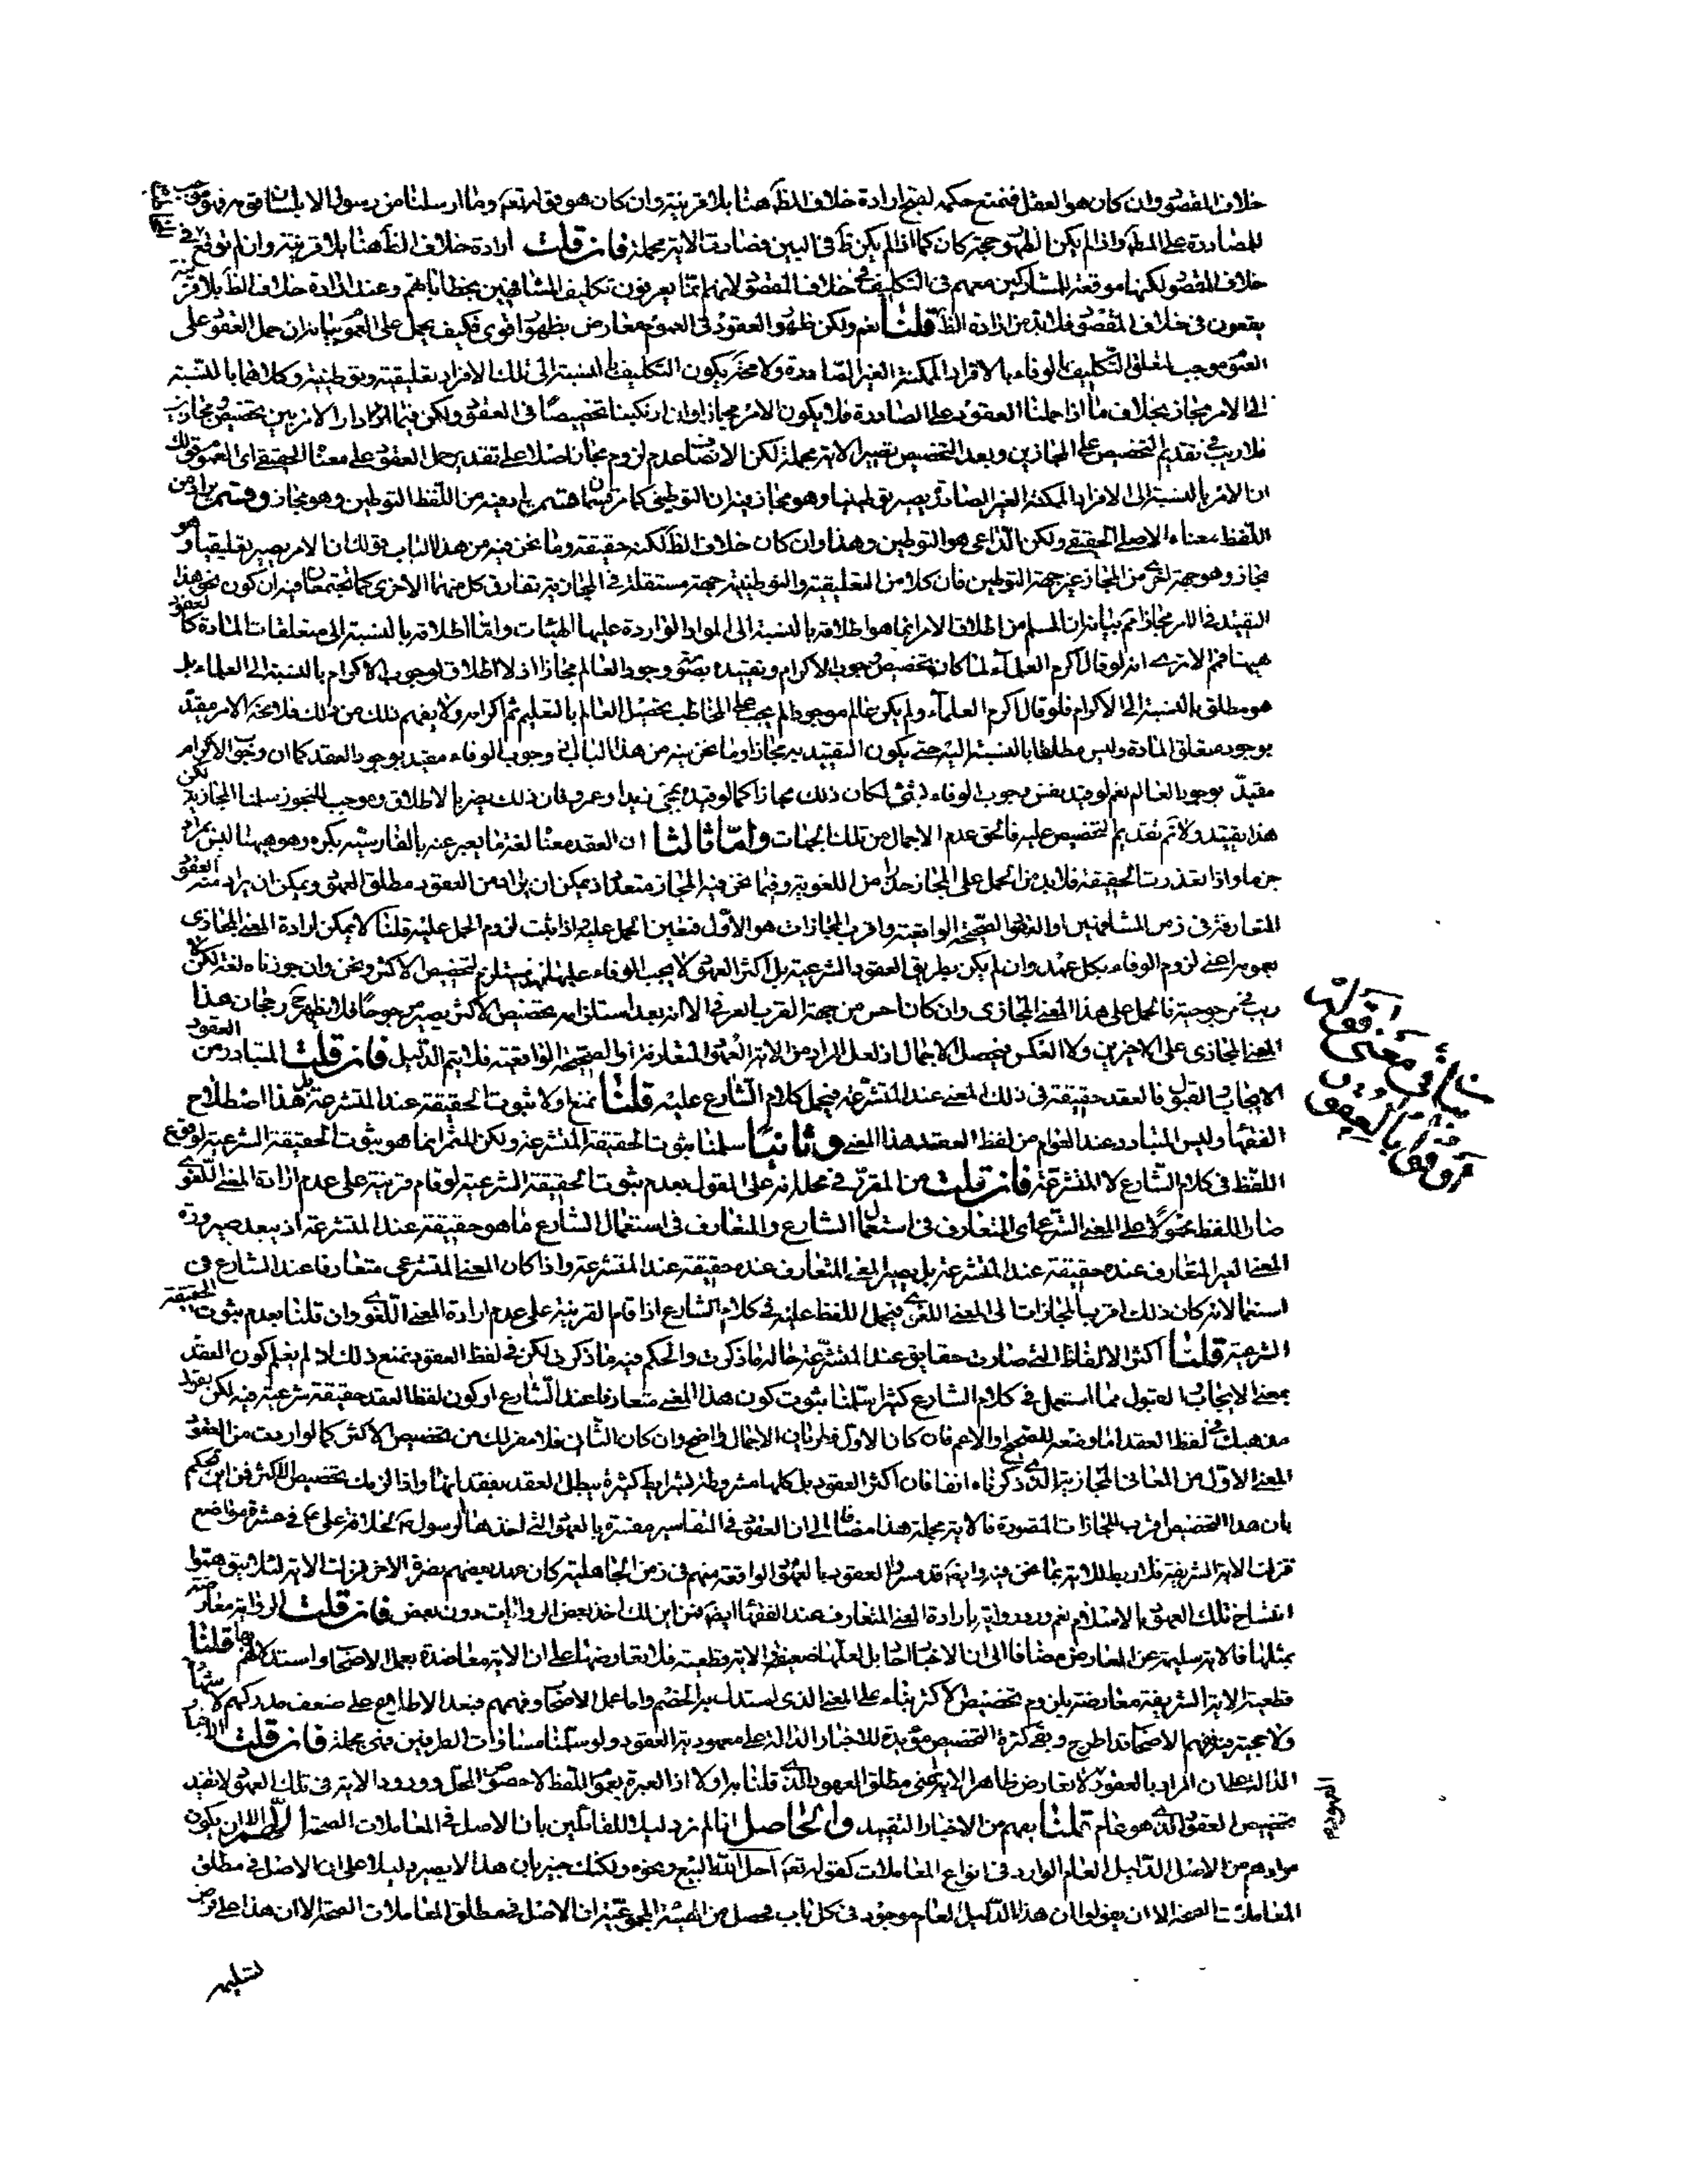 خلاف المقصود وان كان هو العقل فنمنع حكمه لقبح ارادة خلاف الظ هنا بلا قرينة وان كان هو قوله تعم وما ارسلنا من رسول الا بلسان قومه فهو
للصادرة على المط واذا لم يكن الظهور حجة كان كما اذا لم يكن ظ في البين فصارت الاية مجملة فان قلت ارادة خلاف الظ هنا بلا قرينة وان لم توقع في
خلاف المقصود لكنها موقعة للمشاركين معهم في التكليف في خلاف المقصود لانهم انما يعرفون تكليف المشافهين بخطاباتهم وعند ارادة خلاف الظ بلا قرينة
يقعون في خلاف المقصود فلا بد من ارادة الظ قلنا نعم ولكن ظهور العقود في العموم معارض بظهور اقوى فكيف يحمل على العموم بيانه ان حمل العقود على
العموم موجب لتعلق التكليف بالوفاء بالافراد الممكنة الغير الصادرة ولا محة يكون التكليف بالنسبة الى تلك الافراد تعليقية وتوطينية وكلاهما بالنسبة
الى الامر مجاز بخلاف ما اذا حملنا العقود على الصادرة فلا يكون الامر مجازا وان ارتكبنا تخصيصا في العقود ولكن فيما اذا دار الامر بين تخصيص ومجازين
فلا ريب في تقديم التخصيص على المجازين وبعد التخصيص تصير الاية مجملة لكن الانصاف عدم لزوم مجاز اصلا على تقدير حمل العقود على معناه الحقيقي اى العموم قولك
ان الامر بالنسبة الى الافراد الممكنة الغير الصادرة يصير توطينيا وهو مجاز فيه ان التوطيني كما مر قسمان قسم يراد فيه من اللفظ التوطين وهو مجاز وقسم يراد من
اللفظ معناه الاصلي الحقيقي ولكن الداعي هو التوطين وهذا وان كان خلاف الظ لكنه حقيقة وما نحن فيه من هذا الباب قولك ان الامر يصير تعليقيا وهو
مجاز وهو جهة اخرى من المجاز غير جهة التوطين فان كلا من التعليقية والتوطينية جهة مستقلة في المجازية تفارق كل منهما الاخرى كما تجتمعان فيه ان كون نحو هذا
التقييد في الامر مجازا مم بيانه ان المسلم من اطلاق الامر انما هو اطلاقه بالنسبة الى المواد الواردة عليها الهيئات واما اطلاقه بالنسبة الى متعلقات المادة كالعقود
هيهنا فمم الا ترى انه لو قال اكرم العلماء لما كان تخصيص وجوب الاكرام وتقييده بصورة وجود العالم مجازا اذ لا اطلاق لوجوب الاكرام بالنسبة الى العلماء بل
هو مطلق بالنسبة الى الاكرام فلو قال اكرم العلماء ولم يكن عالم موجود لم يجب على المخاطب تحصيل العالم بالتعليم ثم اكرامه ولا يفهم ذلك من ذلك فلا محة الامر مقيد
بوجود متعلق المادة وليس مطلقا بالنسبة اليه حتى يكون التقييد به مجازا وما نحن فيه من هذا الباب في وجوب الوفاء مقيد بوجود العقد كما ان وجوب الاكرام
مقيد بوجود العالم نعم لو قيد نفس وجوب الوفاء بشئ لكان ذلك مجازا كما لو قيد بمجئ زيد او عمرو فان ذلك يضر بالاطلاق وموجب للتجوز سلمنا المجازية لكن
هذا تقييد ولا تم تقديم التخصيص عليه فالحق عدم الاجمال من تلك الجهات واما ثالثا ان العقد معناه لغة ما يعبر عنه بالفارسية بكره وهو هيهنا ليس بمراد
جزما واذا تعذرت الحقيقة فلا بد من الحمل على المجاز حذرا من اللغوية وفيما نحن فيه المجاز متعدد اذ يمكن ان يراد من العقود مطلق العهود ويمكن ان يراد منه العقود
المتعارفة في زمن المشافهين او العقود الصحيحة الواقعية واقرب المجازات هو الاول فتعين الحمل عليه اذا ثبت لزوم الحمل عليه قلنا لا يمكن ارادة المعنى المجازى
بعمومه اعني لزوم الوفاء بكل عهد وان لم يكن بطريق العقود الشرعية بل اكثر العهود لا يجب الوفاء عليها لاجماع فيستلزم تخصيص الاكثر ونحن وان جوزناه لغة لكن لا
ريب في مرجوحيته فالحمل على هذا المعنى المجازى وان كان احسن من جهة القرب العرفي الا انه بعد استلزامه تخصيص الاكثر يصير مرجوحا فلا يظهر ح رجحان هذا
المعنى المجازى على الاخيرين ولا العكس فيحصل الاجمال اذ لعل المراد من الاية العهود المتعارفة او الصحيحة الواقعية فلا يتم الدليل فان قلت المتبادر من العقود
الايجاب والقبول فالعقد حقيقة في ذلك المعنى عند المتشرعة فيحمل كلام الشارع عليه قلنا نمنع اولا ثبوت الحقيقة عند المتشرعة بل هذا اصطلاح
الفقهاء وليس المتبادر عند العوام من لفظ العقد هذا المعنى وثانيا سلمنا ثبوت الحقيقة المتشرعة ولكن المثمر انما هو ثبوت الحقيقة الشرعية لوقوع
اللفظ في كلام الشارع لا المتشرعة فان قلت من المقرر في محله انه على القول بعدم ثبوت الحقيقة الشرعية لو قام قرينة على عدم ارادة المعنى اللغوي
صار اللفظ محمولا على المعنى الشرعي اى المتعارف في استعمال الشارع والمتعارف في استعمال الشارع ما هو حقيقة عند المتشرعة اذ يبعد صيرورة
المعنى الغير المتعارف عنده حقيقة عند المتشرعة بل يصير المعنى المتعارف عنده حقيقة عند المتشرعة واذا كان المعنى المتشرعي متعارفا عند الشارع في
استعمالاته كان ذلك اقرب المجازات الى المعنى اللغوي فيحمل اللفظ عليه في كلام الشارع اذا قام القرينة على عدم ارادة المعنى اللغوي وان قلنا بعدم ثبوت الحقيقة
الشرعية قلنا اكثر الالفاظ التي صارت حقايق عند المتشرعة حاله ما ذكرت والحكم فيه ما ذكر لكن في لفظ العقود نمنع ذلك اذ لم يعلم كون العقد
بمعنى الايجاب والقبول مما استعمل في كلام الشارع كثيرا سلمنا ثبوت كون هذا المعنى متعارفا عند الشارع او كون لفظ العقد حقيقة شرعية فيه لكن نقول
مذهبك في لفظ العقد اما وضعه للصحيح او الاعم فان كان الاول فطريان الاجمال واضح وان كان الثاني فلا مفر لك من تخصيص الاكثر كما لو اريدت من العقود
المعنى الاول من المعاني المجازية الذي ذكرناه انفا فان اكثر العقود بل كلها مشروطة بشرايط كثيرة يبطل العقد بفقدانها واذا لزمك تخصيص الاكثر فمن اين تحكم
بان هذا التخصيص اقرب المجازات المتصورة فالاية مجملة هذا مضافا الى ان العقود في التفاسير مفسرة بالعهود التي اخذها الرسول لخلافة علي ع في عشرة مواضع
فنزلت الاية الشريفة فلا ربط للاية بما نحن فيه وايضا قد فسر العقود بالعهود الواقعة منهم في زمن الجاهلية كان عهد بعضهم بنصرة الاخر فنزلت الاية لئلا يتوهموا
انفساخ تلك العهود بالاسلام نعم ورد رواية بارادة المعنى المتعارف عند الفقهاء ايضا فمن اين لك اخذ بعض الروايات دون بعض فان قلت الرواية معارضة
بمثلها فالاية سليمة عن المعارض مضافا الى ان الاخبار احاد بل لعلها ضعيفة والاية قطعية فلا تعارضها على ان الاية معاضدة بعمل الاصحاب واستدلالهم بها قلنا
قطعية الاية الشريفة معارضة بلزوم تخصيص الاكثر بناء على المعنى الذي استدل به الخصم واما عمل الاصحاب وفهمهم فبعد الاطلاع على ضعف مدركهم لا
ولا حجية فيه ففهم الاصحاب قد اطرح وبقي كثرة التخصيص مؤيدة للاخبار الدالة على معهودية العقود ولو سلمنا مساوات الطرفين فهي مجملة فان قلت الاخبار
الدالة على ان المراد بالعقود لا تعارض ظاهر الاية اعني مطلق العهود الذي قلنا به اولا اذ العبرة بعموم اللفظ لا خصوص المحل وورود الاية في تلك العهود لا تفيد
تخصيص العقود الذي هو عام قلنا يفهم من الاخبار التقييد والحاصل انا لم نر دليلا للقائلين بان الاصل في المعاملات الصحة اللهم الا ان يكون
مرادهم من الاصل الدليل العام الوارد في انواع المعاملات كقوله تعم احل الله البيع ونحوه ولكنك خبير بان هذا لا يصير دليلا على ان الاصل في مطلق
المعاملات الصحة الا ان يقولوا ان هذا الدليل العام موجود في كل باب فحصل من الهيئة المجموعية ان الاصل في مطلق المعاملات الصحة الا ان هذا على فرض
تسليمه